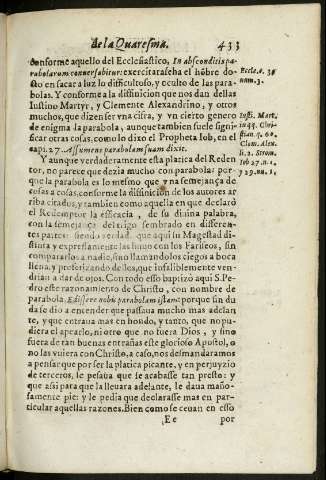 de la Quaresma. 433
conforme aquello del Ecclesiastico, In absconditis pa-
rabolarum conuersabitur: exercitarase ha el hõbre do-
cto en sacar a luz lo dificultoso, y oculto de las para-
bolas. Y conforme a la diffinicion que nos dan dellas
Iustino Martyr, y Clemente Alexandrino, y otros
muchos, que dizen ser vna cifra, y vn cierto genero
de enigma la parabola, aunque tambien suele signi-
ficar otras cosas, como lo dixo el Propheta Iob, en el
capi. 27. Assumens parabolam suam dixit.
Y aunque verdaderamente esta platica del Reden
tor, no parece que dezia mucho con parabola: por-
que la parabola es lo mismo que vna semejança de
cosas a cosas, conforme la difinicion de los autores ar
riba citados, y tambien como aquella en que declarò
el Redemptor la efficacia, de su diuina palabra,
con la semejança del trigo sembrado en differen-
tes partes: siendo verdad que aqui su Magestad di-
stinta y expressamente las huuo con los Fariseos, sin
compararlos a nadie, sino llamandolos ciegos a boca
llena, y profetizando dellos, que infaliblemente ven-
drian a dar de ojos. Con todo esso baptizò aqui S. Pe-
dro este razonamiento de Christo, con nombre de
parabola. Edissere nobis parabolam istam: porque sin du
da se dio a encender que passaua mucho mas adelan
te, y que entraua mas en hondo, y tanto, que no pu-
diera el apearlo, ni otro que no fuera Dios, y sino
fuera de tan buenas entrañas este glorioso Apostol, o
no las viuera con Christo, a caso, nos desmandaramos
a pensar que por ser la platica picante, y en perjuyzio
de terceros, le pesaua que se acabasse tan presto: y
que assi para que la lleuara adelante, le daua maño-
samente pie: y le pedia que declarasse mas en par-
ticular aquellas razones. Bien como se ceuan en esso
Ee por
Eccle. c. 39
num. 3.
Iusti. Mart.
in q. q. Chri-
stian. q. 60.
Clem. Alex.
li. 2. Strom.
Iob 27. n. 1.
y 29. nn. 1.